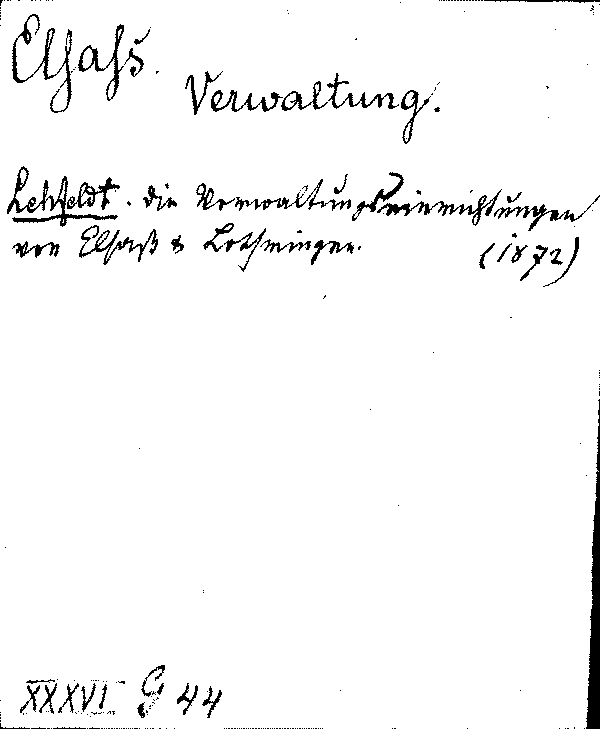 Elsass.
Verwaltung.
Lehfeldt. die Verwaltungseinrichtungen
von Elsaß & Lothringen. (1872)
XXXVI G 44